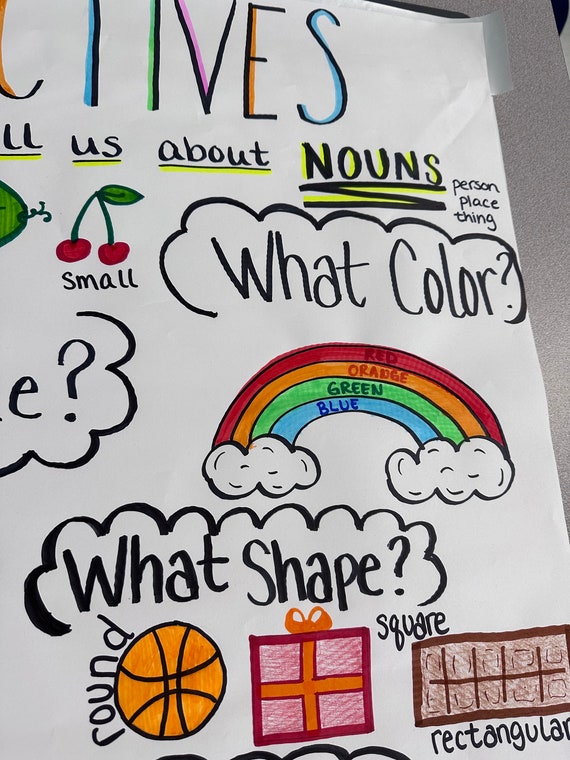 CTIVES
ll us about NOUNS
person
place
thing
small
What Color?
e?
RED
ORANGE
GREEN
BLUE
What Shape?
round
square
rectangular